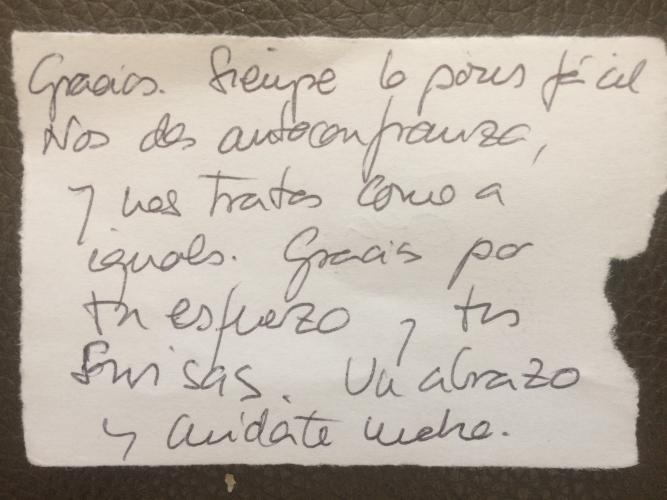 Gracias. Siempre lo pones fácil
Nos das autoconfianza,
y nos tratas como a
iguales. Gracias por
tu esfuerzo y tus
sonrisas. Un abrazo
y cuidate mucho.